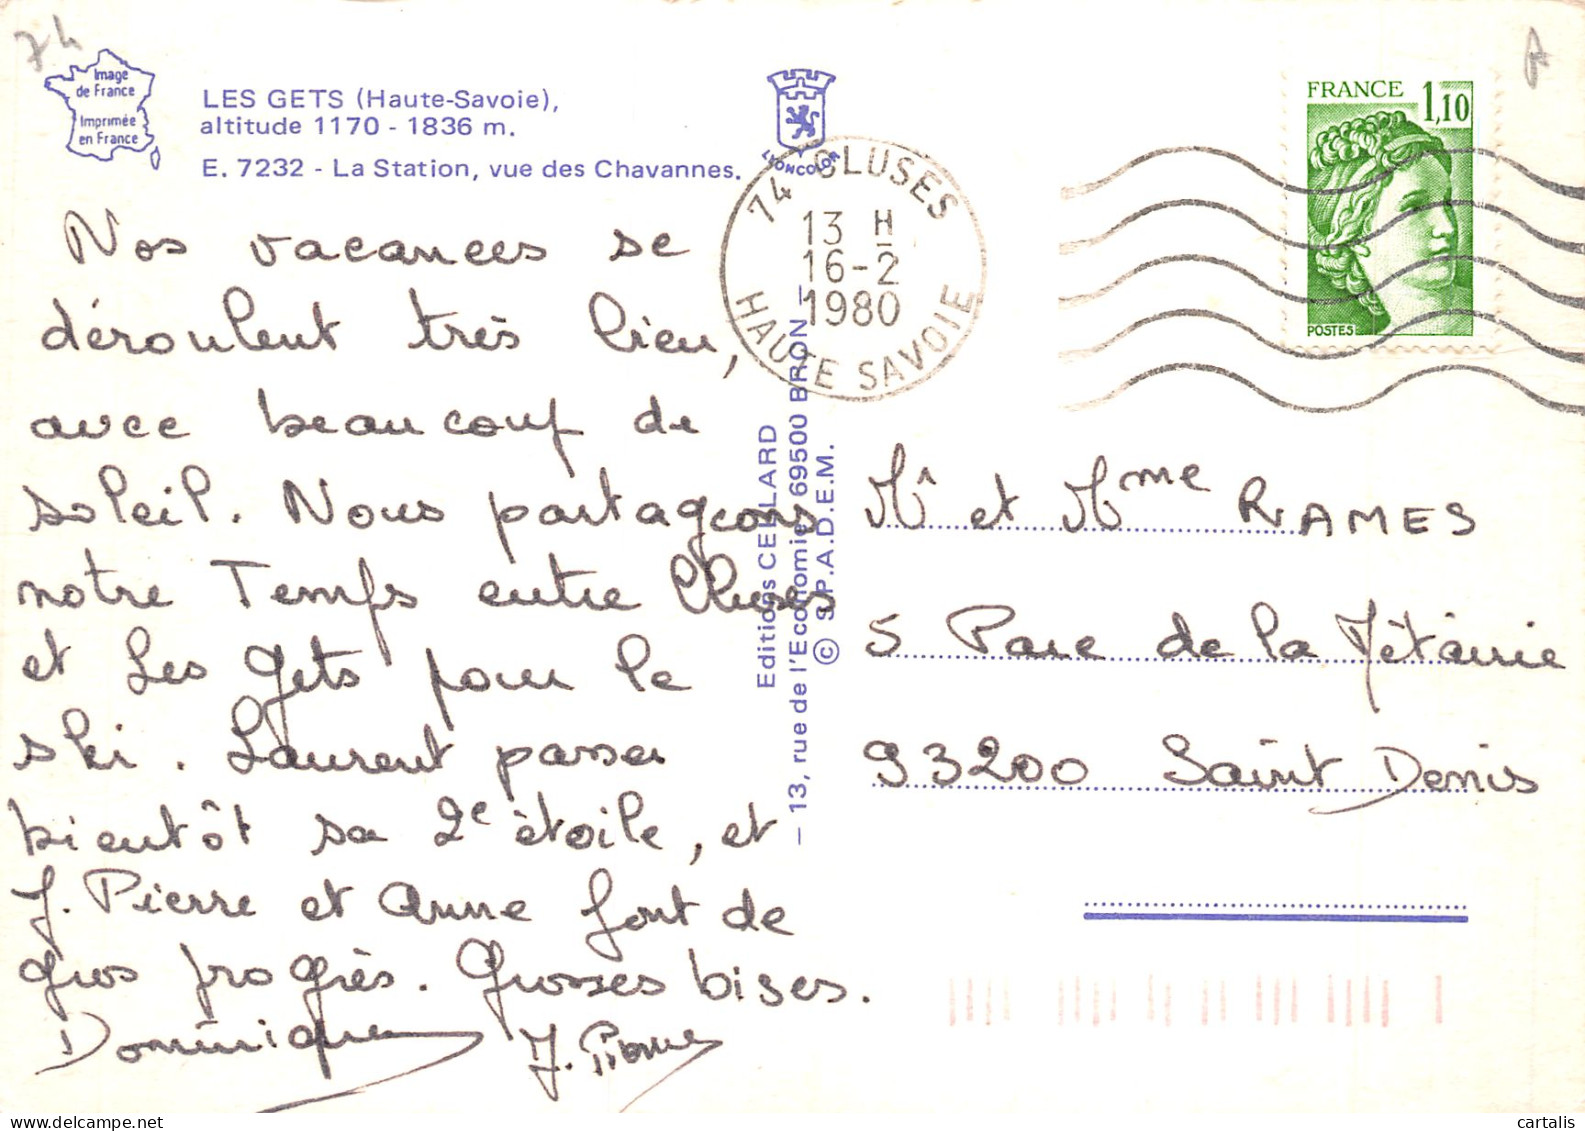 74
A
Image
de France
Imprimée
en France
LES GETS (Haute-Savoie),
altitude 1170 - 1836 m.
E. 7232 - La Station, vue des Chavannes.
LYONCOLOR
74 CLUSES
13 H
16-2
1980
HAUTE SAVOIE
FRANCE 1,10
POSTES
Nos vacances se
déroulent très bien,
avec beaucoup de
soleil. Nous partageons
notre Temps entre Cluses
et Les Gets pour le
ski. Laurent passer
bientôt sa 2e étoile, et
J. Pierre et Anne font de
gros progrès. Grosses bises.
Dominique J. Pierre
Editions CELLARD
— 13, rue de l'Economie 69500 BRON —
© S.P.A.D.E.M.
Mr et Mme RAMES
5 Parc de la Métairie
93200 Saint Denis
www.delcampe.net
cartalis